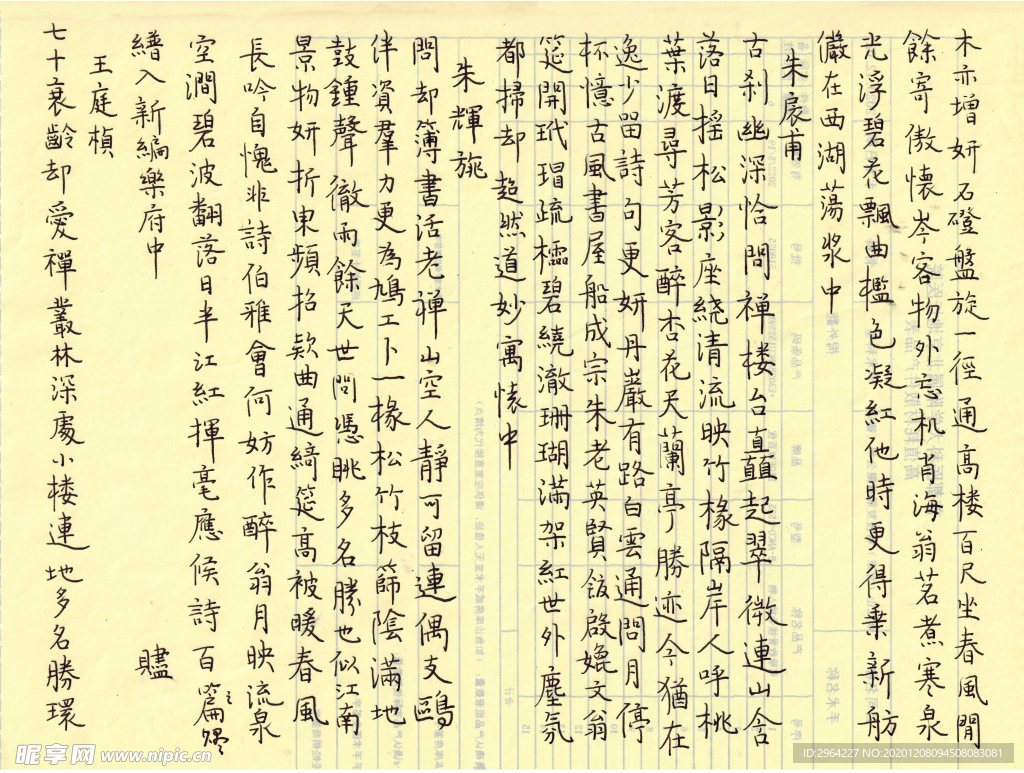 木亦增妍石磴盤旋一徑通高楼百尺坐春風閒
餘寄傲懷岑客物外忘机肖海翁茗煮寒泉
光浮碧花飄曲檻色凝紅他時更得乗新舫
儼在西湖蕩槳中
朱扆甫
古刹幽深恰問禅楼台直顛起翠微連山含
落日摇松影座繞清流映竹椽隔岸人呼桃
葉渡尋芳客醉杏花天蘭亭勝迹今猶在
逸少留詩句更妍丹巖有路白雲通問月停
杯憶古風書屋船成宗朱老英賢飯啟媲文翁
筵開玳瑁疏櫺碧繞澈珊瑚满架紅世外塵氛
都掃却超然道妙寓懷中
朱輝旒
問却簿書活老禅山空人靜可留連偶支鷗
伴資羣力更為鳩工卜一椽松竹枝篩陰满地
鼓鍾聲徹雨餘天世問憑眺多名勝也似江南
景物妍折柬頻招欵曲通綺筵高被暖春風
長吟自愧非詩伯雅會何妨作醉翁月映流泉
空澗碧波翻落日半江紅揮毫應候詩百篇
繕入新編樂府中 贐
王庭楨
七十衰齡却愛禪叢林深處小楼連地多名勝環
昵享网 www.nipic.cn
ID:2964227 NO:20201208094508083081